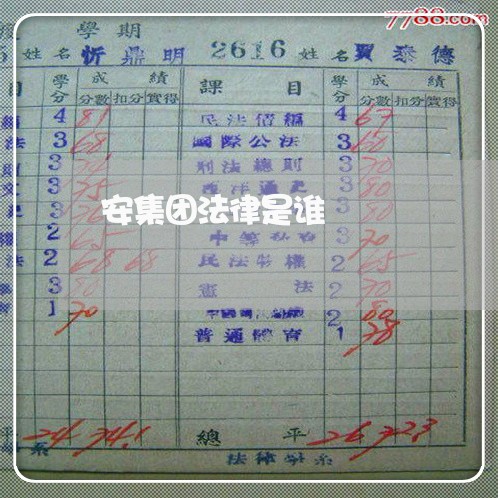 7788.com
學期
姓名 忻鼎明 2616 姓名 賈泰德
目 學分 成績 課目 學分 成績
分數 扣分 實得 分數 扣分 實得
4 81 民法債編 4 67
法 3 68 國際公法 3 60
3 刑法總則 3 70
3 75 西洋通史 3 80
3 3 80
安集团法律是谁
2 65 3 70
法 2 68 68 民法物權 2 65
3 80 憲法 2 70
1 70 2 80
普通體育 1 78
平 24 74.1 總平 26 72.3
系 法律學系